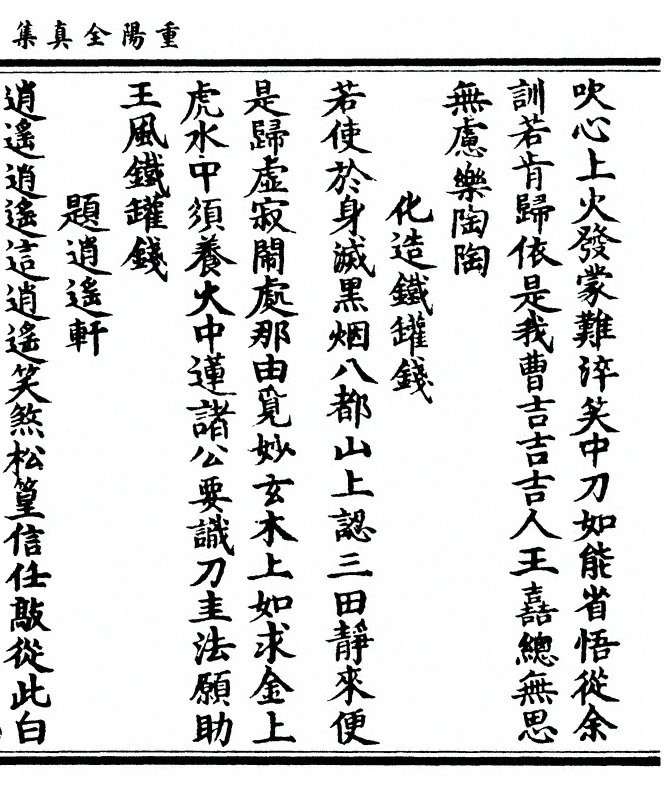 重陽全真集
吹心上火發蒙難淬笑中刀如能省悟從余
訓若肯歸依是我曹吉吉吉人王嚞總無思
無慮樂陶陶
化造鐵罐錢
若使於身滅黑烟八都山上認三田靜來便
是歸虛寂鬧處那由覓妙玄木上如求金上
虎水中須養火中蓮諸公要識刀圭法願助
王風鐵罐錢
題逍遙軒
逍遙逍遙這逍遙笑煞松篁信任敲從此白